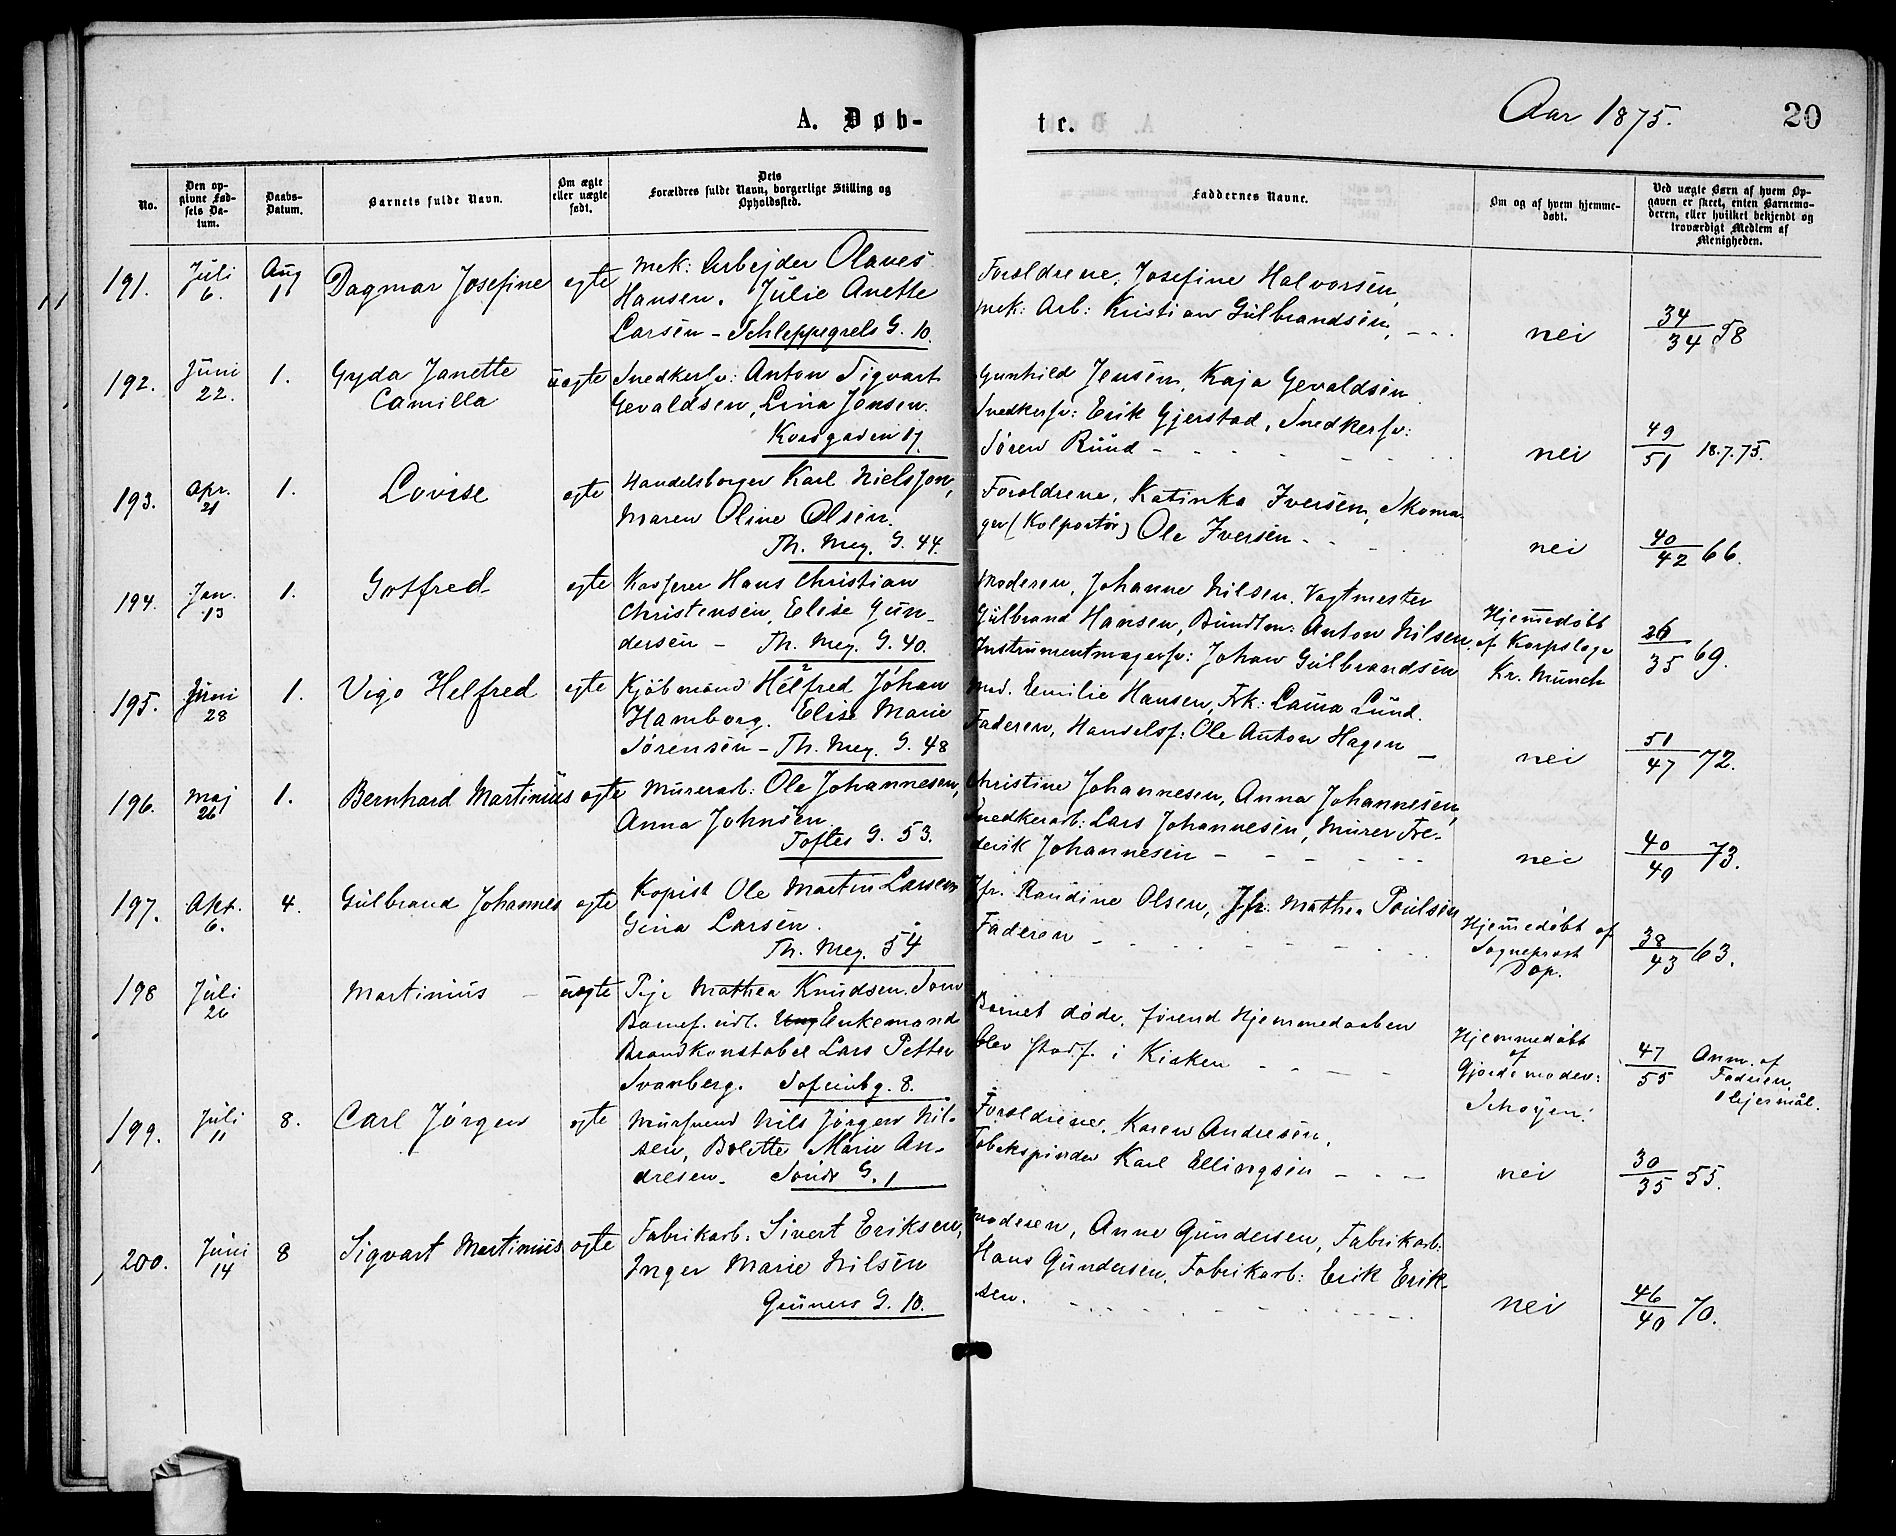 A. Døb-
te.
Aar 1875.
20
No.
Den op-
givne Fød-
sels Da-
tum.
Daabs-
Datum.
Barnets fulde Navn.
Om ægte
eller uægte
født.
Dets
Forældres fulde Navn, borgerlige Stilling og
Opholdssted.
Faddernes Navne.
Om og af hvem hjemme-
døbt.
Ved uægte Børn af hvem Op-
gaven er skeet, enten Barnemo-
deren, eller hvilket bekjendt og
troværdigt Medlem af
Menigheden.
191.
Juli
6.
Aug
1
Dagmar Josefine
egte
Mek: Arbejder Olaves
Hansen. Julie Anette
Larsen - Schleppegrels G. 10.
Foroldrene, Josefine Halvorsen,
Mek: Arb: Kristian Gulbrandsen, - - -
nei
34
34 58
192.
Juni
22.
1.
Gyda Janette
Camilla
uegte
Snedkersv: Anton Sigvart
Gevaldsen, Lina Jensen.
Korsgaden 17.
Gunhild Jensen, Kaja Gevaldsen
Snedkersv: Erik Gjerstad, Snedkersv:
Søren Ruud - - - - -
nei
49
51 18.7.75.
193.
Apr.
21
1.
Lovise
egte
Handelsborger Karl Nielsson,
Maren Oline Olsen.
Th. Mey. G. 44.
Foroldrene, Katinka Iversen, Skoma-
ger (Kolportør) Ole Iversen - - -
nei
40
42 66.
194.
Jan.
13
1.
Gotfred
egte
Kasserer Hans Christian
Christensen, Elise Gun-
dersen - Th. Mey. G. 40.
Moderen, Johanne Nilsen. Vagtmester
Gulbrand Hansen, Bundtm: Anton Nilsen,
Instrumentmagersv: Johan Gulbrandsen
Hjemmedøbt
af Korpslæge
Kr. Munch
26
35 69.
195.
Juni
28
1.
Vigo Helfred
egte
Kjøbmand Helfred Johan
Hamborg. Elise Marie
Sørensen - Th. Mey. G. 48
Mad. Emilie Hansen, Frk: Laura Lund.
Faderen, Handelsf: Ole Anton Hagen -
nei
51
47 72.
196.
Maj
26
1.
Bernhard Martinius
egte
Murerarb: Ole Johannesen,
Anna Johnsen
Toftes G. 53.
Christine Johannesen, Anna Johannesen,
Snedkerarb: Lars Johannesen, Murer Fre-
derik Johannesen - - - - -
nei
40
40 73.
197.
Okt.
6.
4.
Gulbrand Johannes
egte
Kopist Ole Martin Larsen
Gina Larsen.
Th. Mey. 54
Jfr. Randine Olsen, Jfr. Mathea Poulsen
Faderen - - - - -
Hjemmedøbt af
Sogneprest
Dop.
38
43 63.
198
Juli
26
Martinius -
uegte
Pige Mathea Knudsen. Som
Barnef. udl. Enkemand
Brandkonstabel Lars Petter
Svanberg. Sofienbg. 8.
Barnet døde, førend Hjemmedaaben
blev stadf. i Kirken - - - -
Hjemmedøbt
af
Gjordemoder:
Schøyen.
47
55 Anm. af
Faderen.
1 Lejermål.
199.
Juli
11
8.
Carl Jørgen
egte
Mursvend Nils Jørgen Nil-
sen, Bolette Marie An-
dresen. Søndr G. 1
Foroldrene, Karen Andresen,
Tobakspinder Karl Ellingsen - - -
nei
30
35 55.
200.
Juni
14
8
Sigvart Martinius
egte
Fabrikarb: Sivert Eriksen,
Inger Marie Nilsen
Gruners G. 10.
Moderen, Anne Gundersen, Fabrikarb:
Hans Gundersen, Fabrikarb: Erik Erik-
sen. - - - - -
nei
46
40 70.